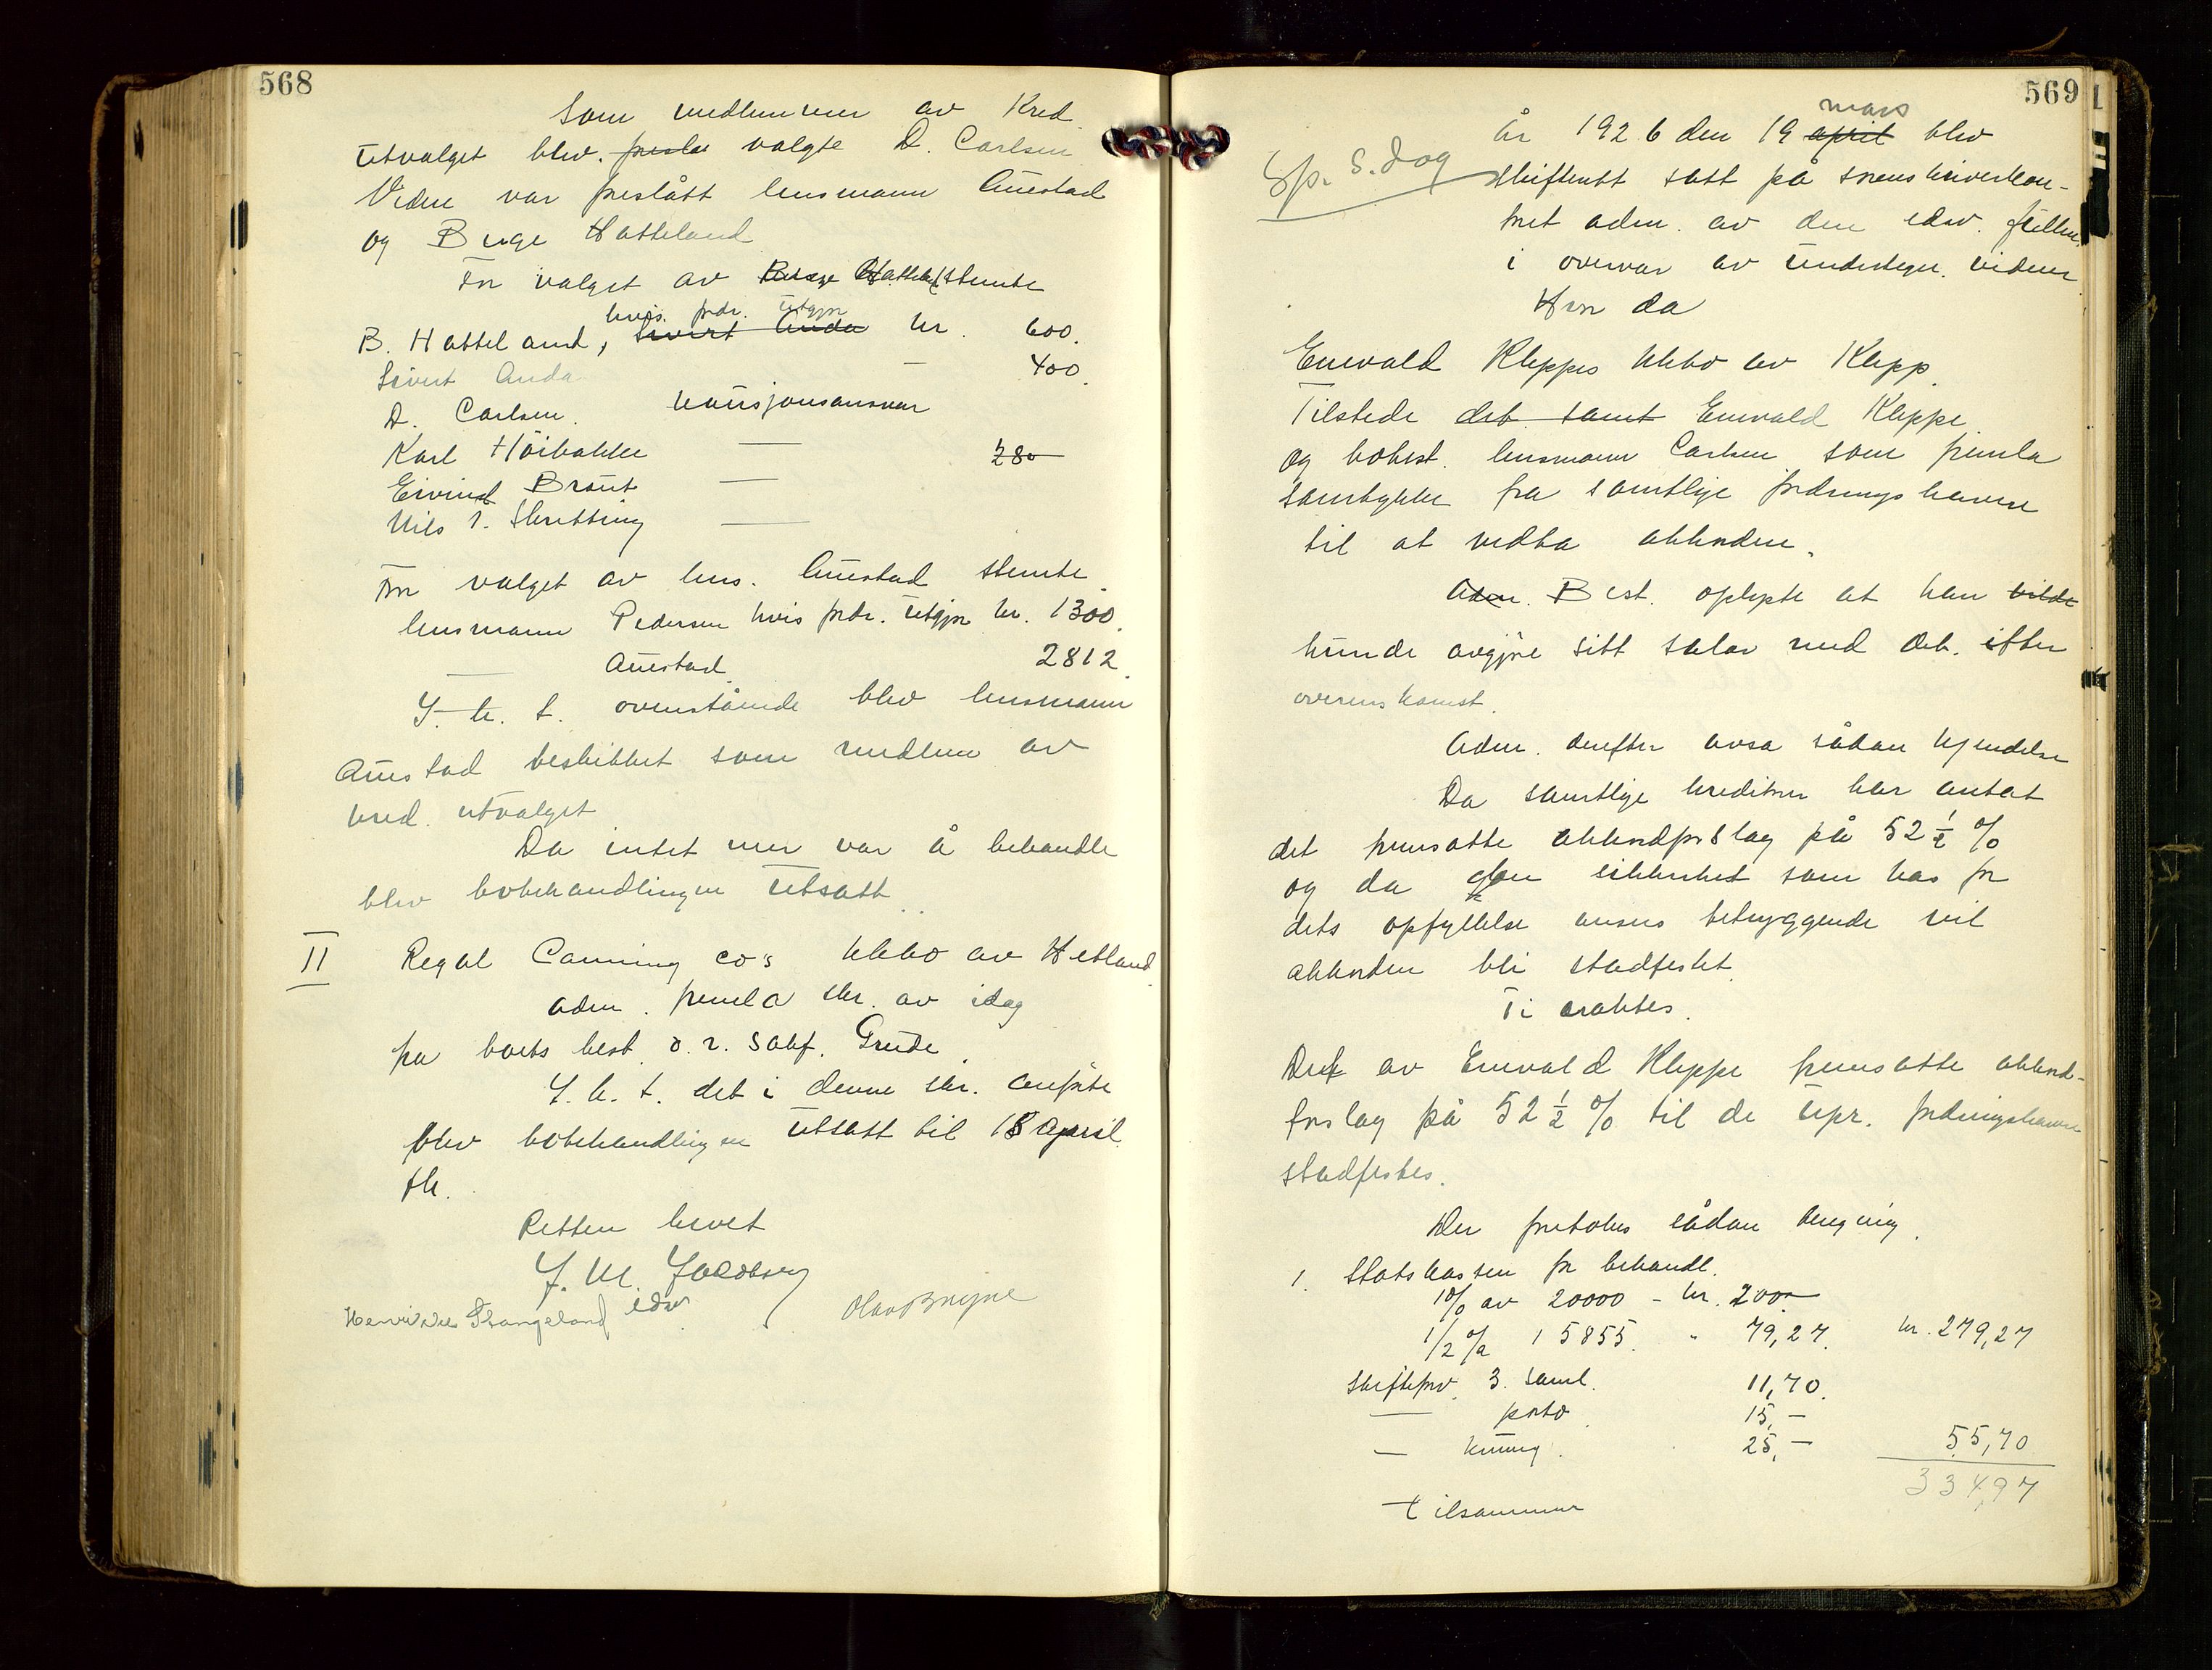 568
Som medlemmer av Kred.
utvalget blev. foresla valgte D. Carlsen
Videre var foreslått lensmann Auestad
og Buge Hatteland
For valget av Buge Hattela stemte
hvis. fordr. utgjør
B. Hatteland, Sivert Anda kr. 600.
Sivert Anda — 400.
D. Carlsen. kausjonsansvar
Karl Höibakke — 280
Eivind Braut —
Nils T. Skretting —
For valget av lens. Auestad stemte
lensmann Pedersen hvis fordr. utgjør kr. 1300.
— Auestad 2812.
I. h. t. ovenstående blev lensmann
Auestad beskikket som medlem av
kred. utvalget
Da intet mer var å behandle
blev bobehandlingen utsatt..
II Regal Canning co's kkbo av Hetland
adm. fremla skr. av idag
fra boets best. o. r. sakf. Grude.
I. h. t. det i denne skr. anförte
blev bobehandlingen utsatt til 18 April
fk.
Retten hevet
J. M. Jacobsen
edsv.
Henrikke Skangeland Olav Bryne
569
mars
År 1926 den 19 april blev
Sp. S. dog skifterett satt på sorenskriverkon-
toret adm. av den edsv. fullm.
i overvær av undertegn. vidner
Hvor da
Enevald Kleppes kkbo av Klepp.
Tilstede deb. samt Enevald Kleppe
og bobest. lensmann Carlsen som fremla
samtykke fra samtlige fordringshavere
til at vedta akkorden.
Adm. Best. oplyste at han vilde
kunde avgjöre sitt salær med deb. efter
overenskomst.
Adm. derefter avsa sådan kjendelse
Da samtlige kreditorer har antat
det fremsatte akkordforslag på 52 1/2 %
og da den sikkerhet som has for
dets opfyllelse anses betryggende vil
akkorden bli stadfestet.
Ti eraktes.
Det av Enevald Kleppe fremsatte akkord-
forslag på 52 1/2 % til de upr. fordringshavere
stadfestes.
Der foretokes sådan beregning.
1. Statskassen for behandl.
1% av 20000 - kr. 200-
1/2 % 15855. " 79,27. kr. 279,27
Skifteforv. 3. saml. 11,70.
— porto. 15,-
— kunng. 25,- 55,70
334,97
tilsammen